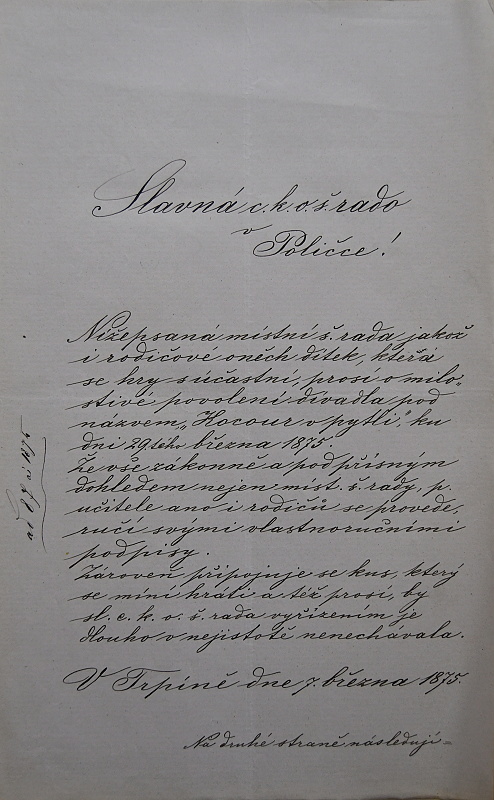 Slavná c. k. o. š. rado
v
Poličce!
Nížepsaná místní š. rada, jakož
i rodičové oněch dítek, kteřá
se hry súčastní, prosí o milo-
stivé povolení divadla pod
názvem „Kocour v pytli“, ku
dni 29tého března 1875.
Že vše zákonně a pod přísným
dohledem nejen míst. š. rady, p.
učitele ano i rodičů se provede,
ručí svými vlastnoručními
podpisy.
Zároveň připojuje se kus, který
se míní hráti a též prosí, by
sl. c. k. o. š. rada vyřízením je
dlouho v nejistotě nenechávala.
V Trpíně dne 7. března 1875.
Na druhé straně následují=